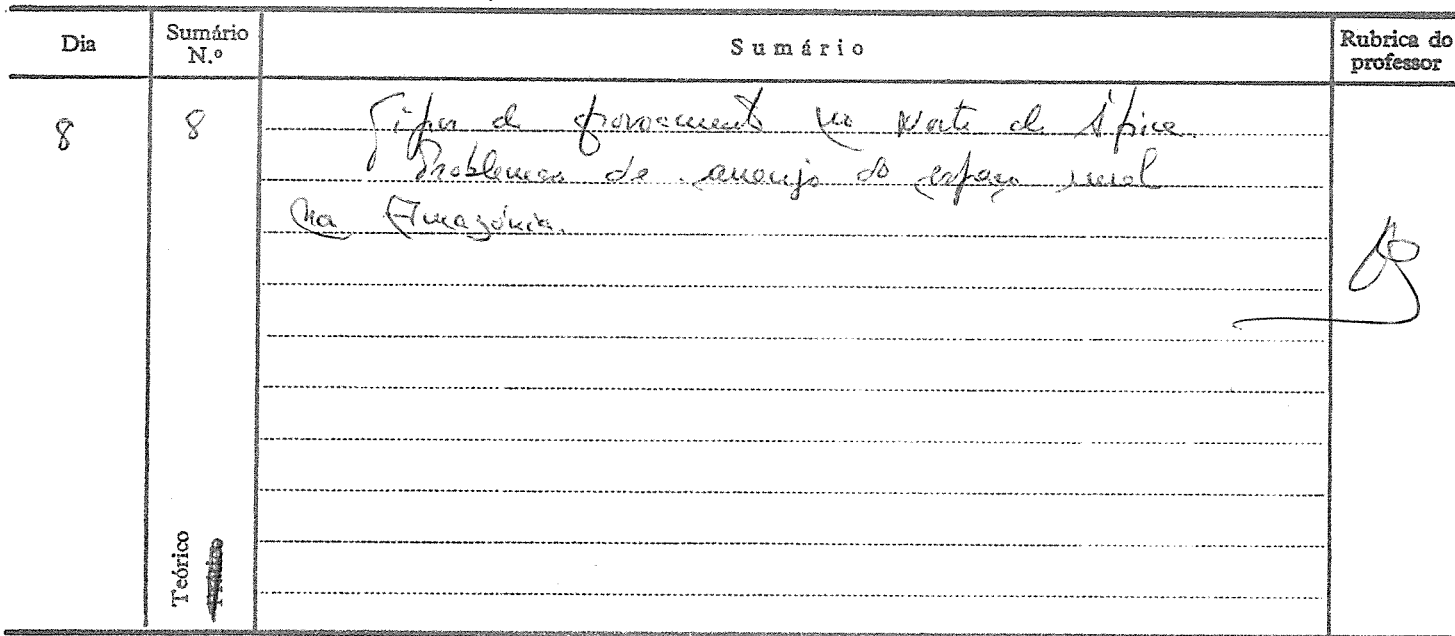 Dia
Sumário N.º
Sumário
Rubrica do professor
8
8
Tipos de povoamento no Norte de África.
Problemas de arranjo do espaço rural
na Amazónia.
Teórico